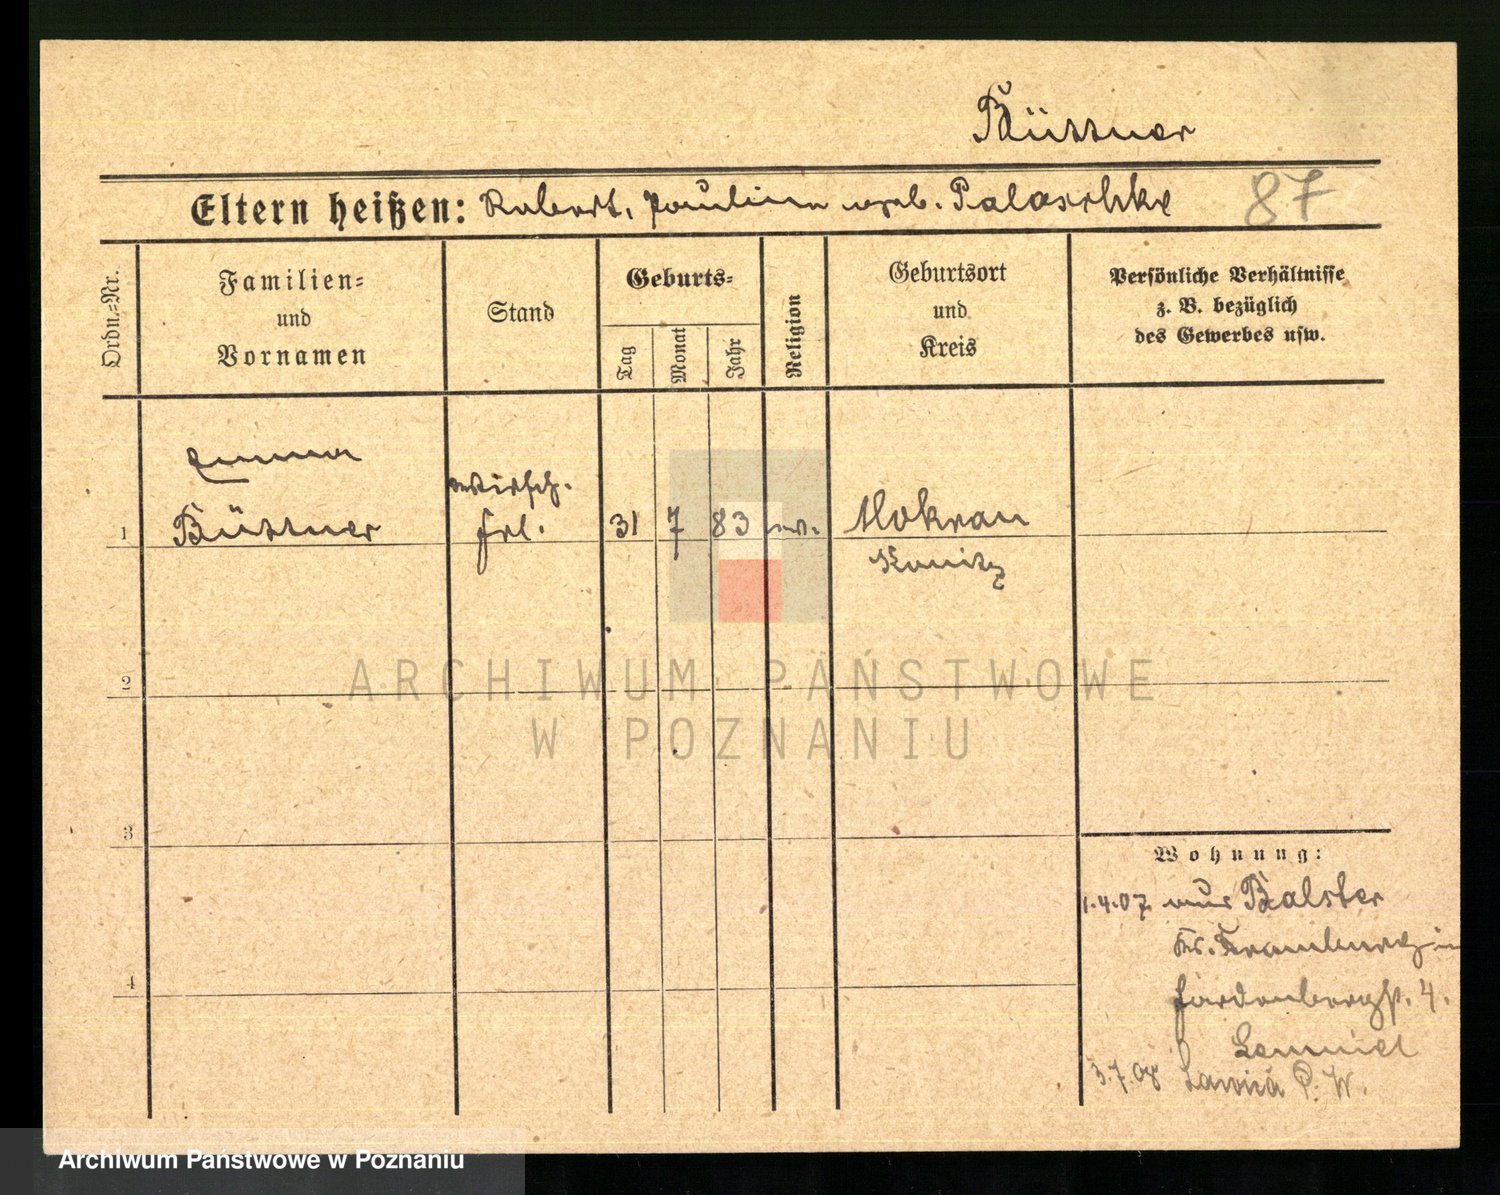 Büttner
Eltern heißen: Robert, Pauline geb. Palaschke 87
Ordn.-Nr.
Familien-
und
Vornamen
Stand
Geburts-
Tag
Monat
Jahr
Religion
Geburtsort
und
Kreis
Persönliche Verhältnisse
z. B. bezüglich
des Gewerbes usw.
1
Emma
Büttner
Wirtsch.
Frl.
31 7 83 ev.
Mokrau
Konitz
2
3
4
Wohnung:
1.4.07 aus Balster
Kr. Dramburg in
Hardenbergst. 4.
3.7.08 P. W.
ARCHIWUM PAŃSTWOWE
W POZNANIU
Archiwum Państwowe w Poznaniu